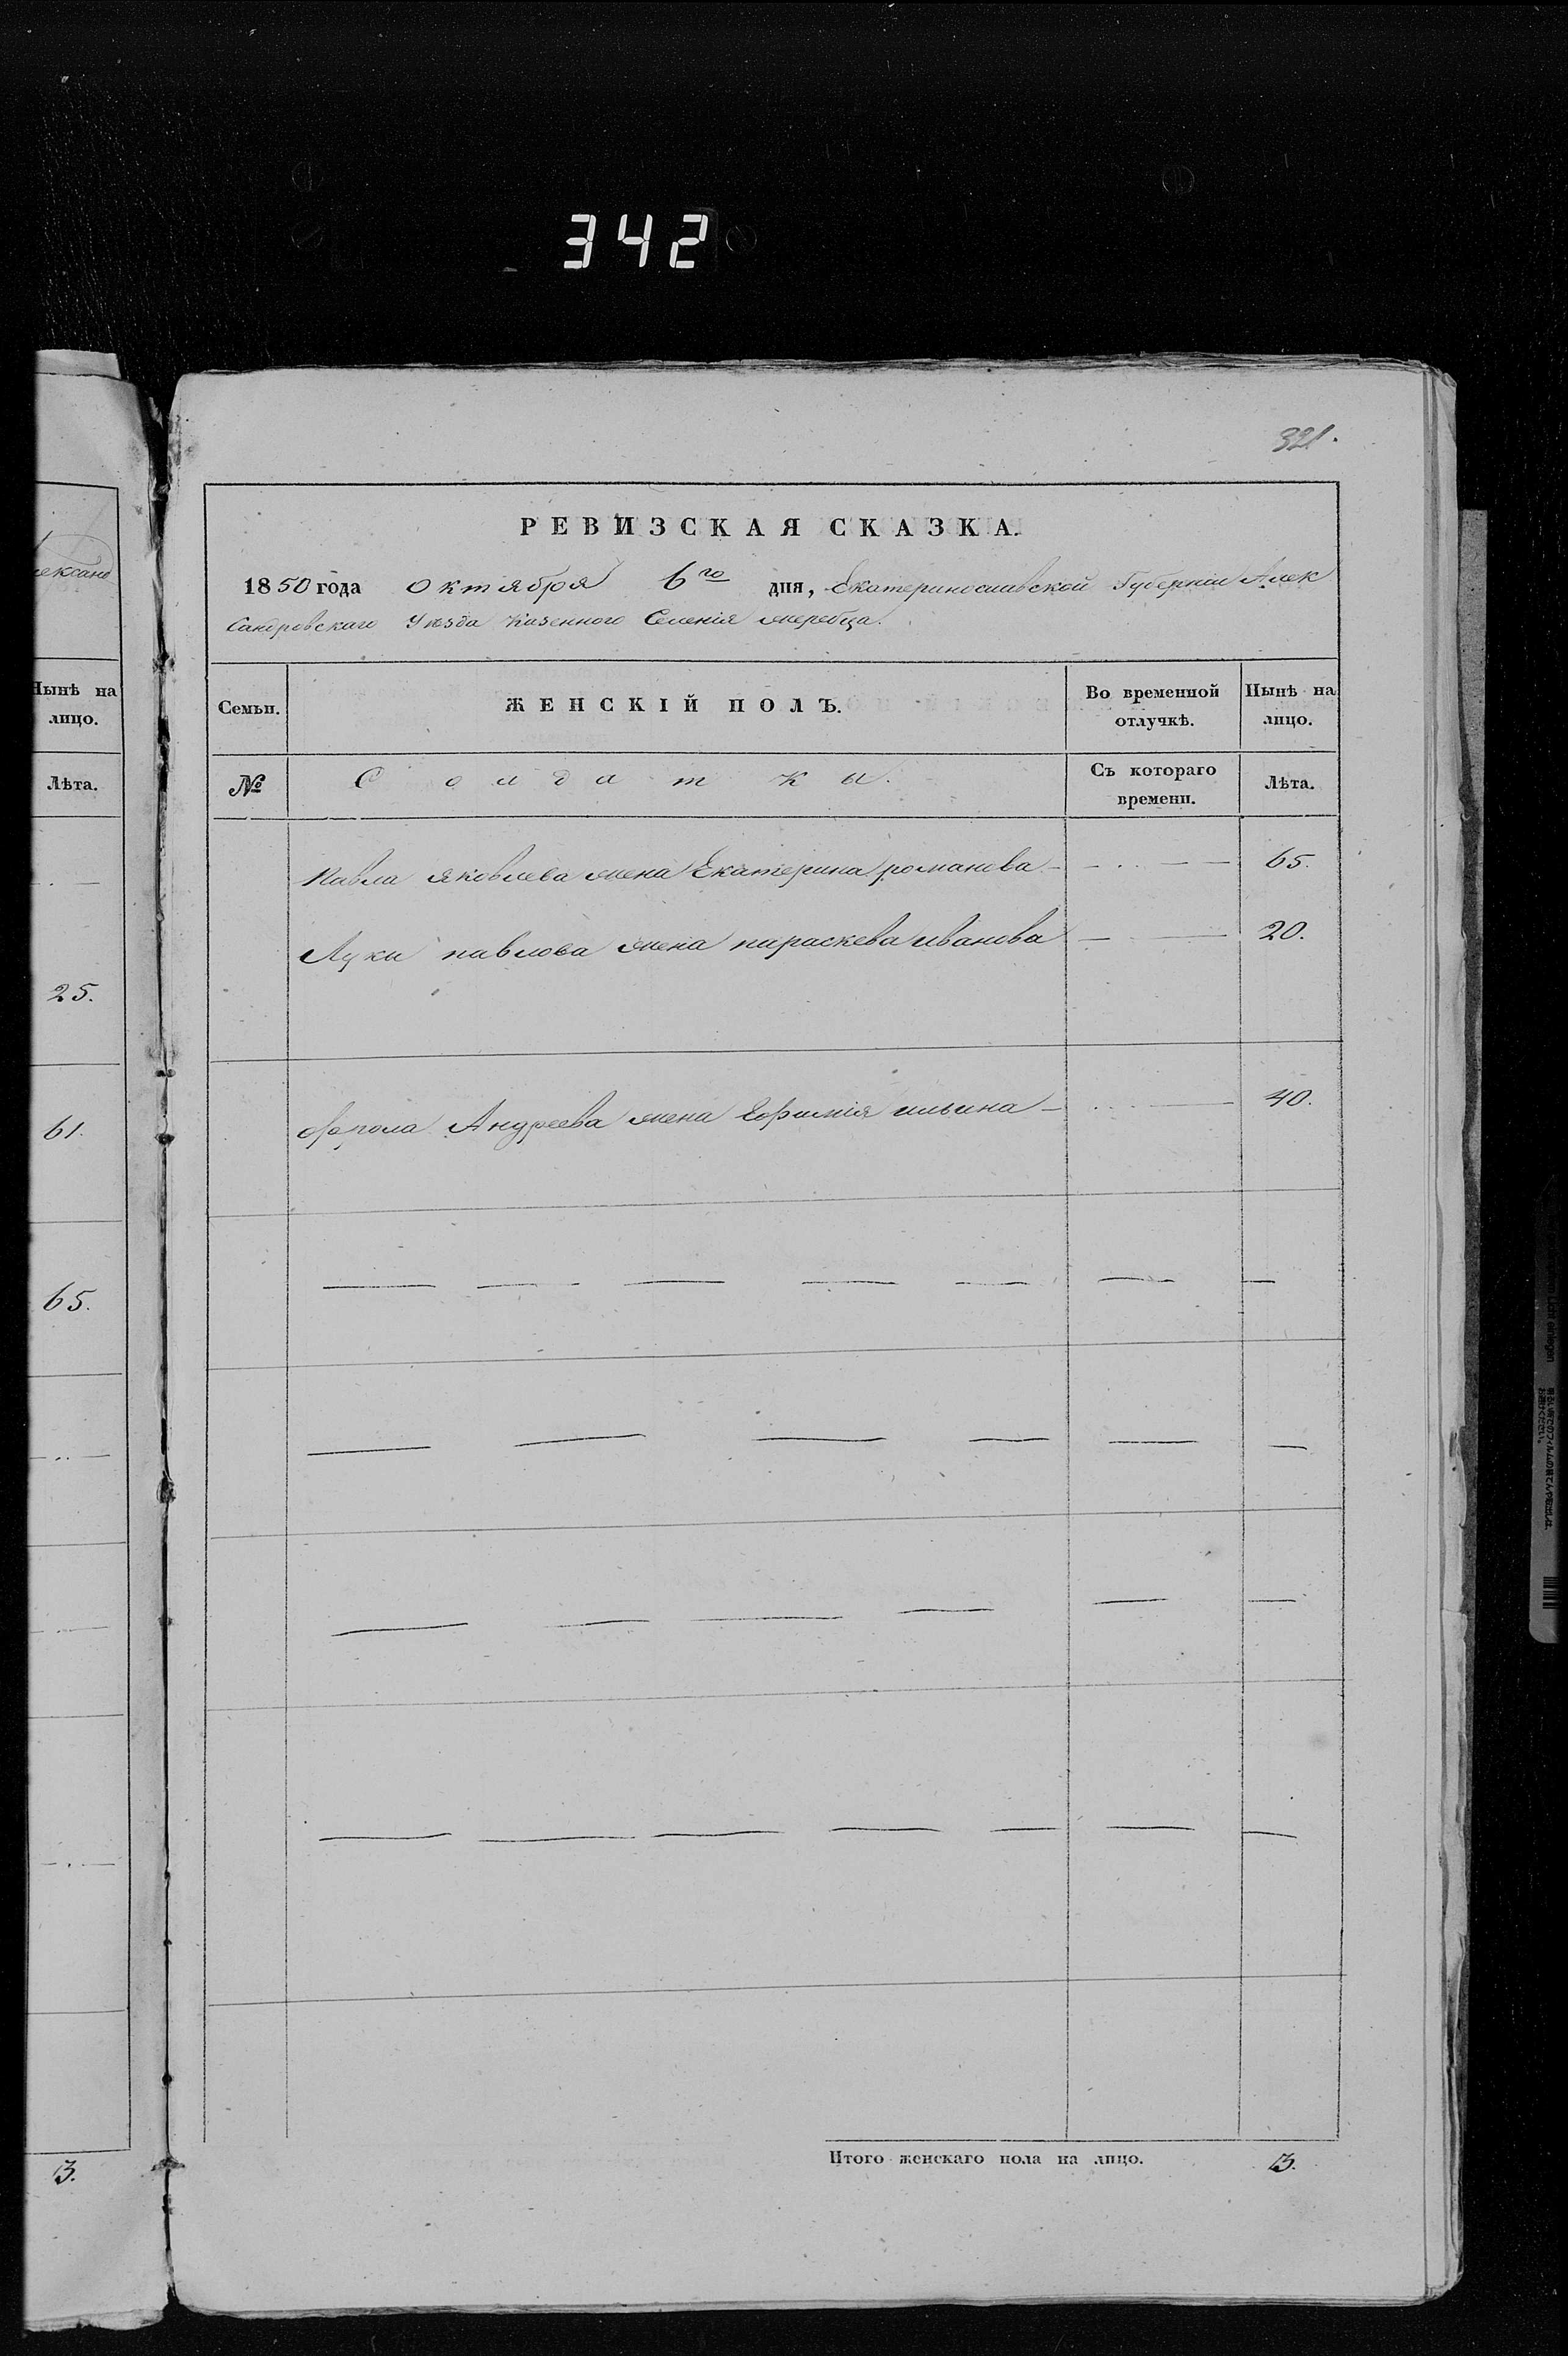 342
321.
РЕВИЗСКАЯ СКАЗКА.
1850 года октября 6го дня, Екатеринославской Губерніи Алек
сандровскаго Уѣзда казенного Селенія жеребца.
Семьи. ЖЕНСКІЙ ПОЛЪ. Во временной отлучкѣ. Нынѣ на лицо.
№ Солдатки. Съ котораго времени. Лѣта.
Павла яковлева жена Екатерина романова 65.
Луки павлова жена параскева иванова 20.
Андреева жена Ефимія ильина 40.
Итого женскаго пола на лицо. 3.
ександ
Нынѣ на
лицо.
Лѣта.
25.
61.
65.
3.